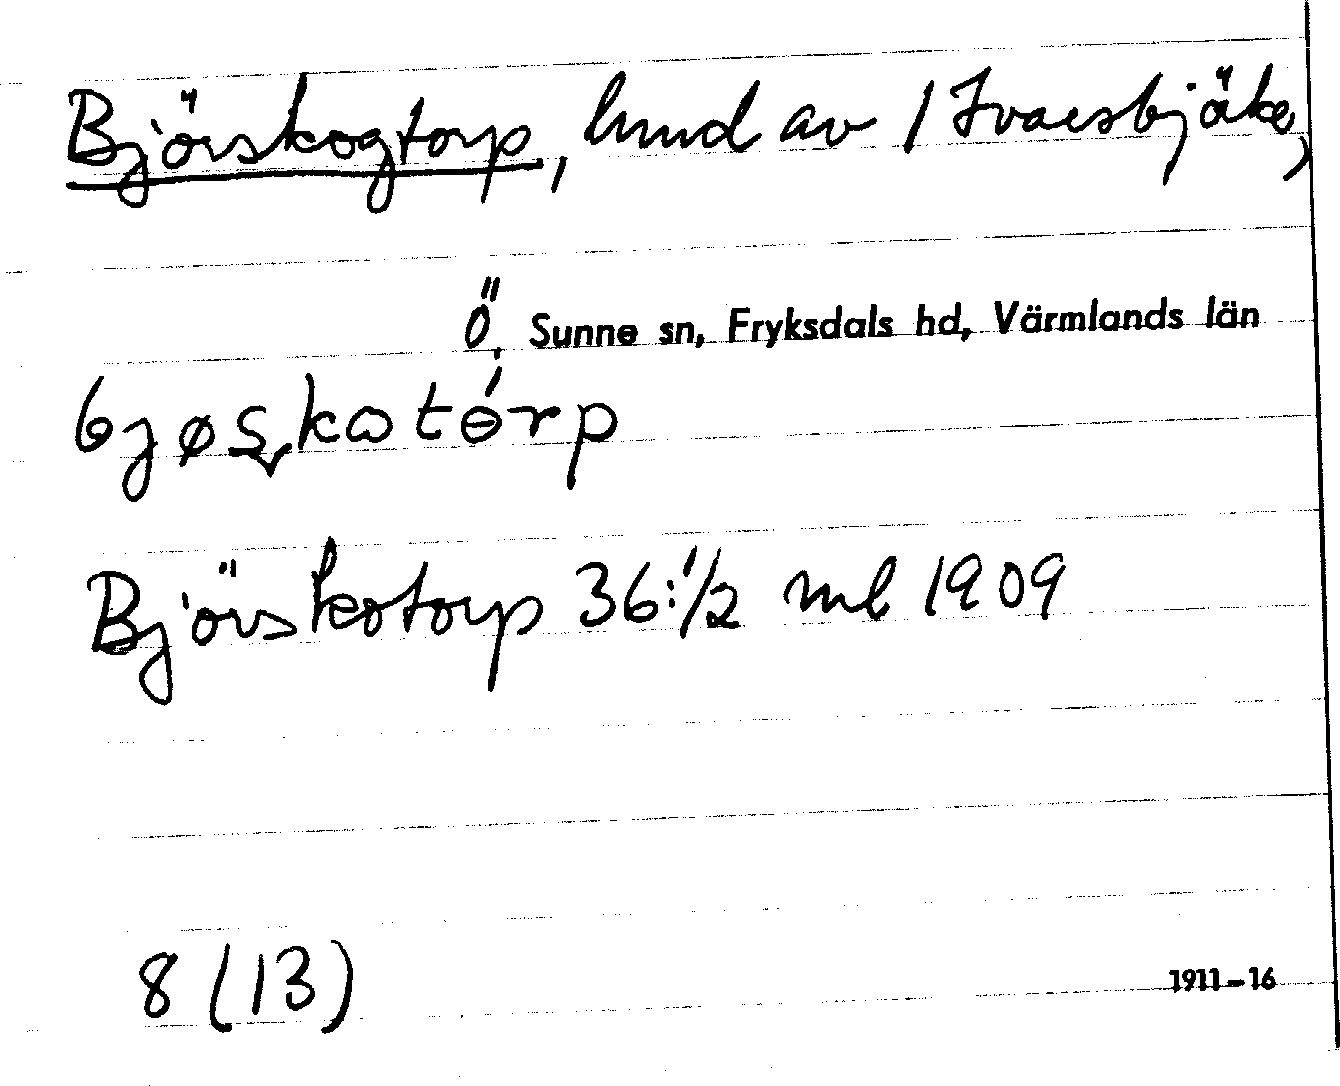 Björskogtorp, hmd av 1 Ivarsbjäke,
Ö. Sunne sn, Fryksdals hd, Värmlands län
bjøşkatɵ́rp
Björskotorp 36:1/2 ml 1909
8 (13)
1911–16